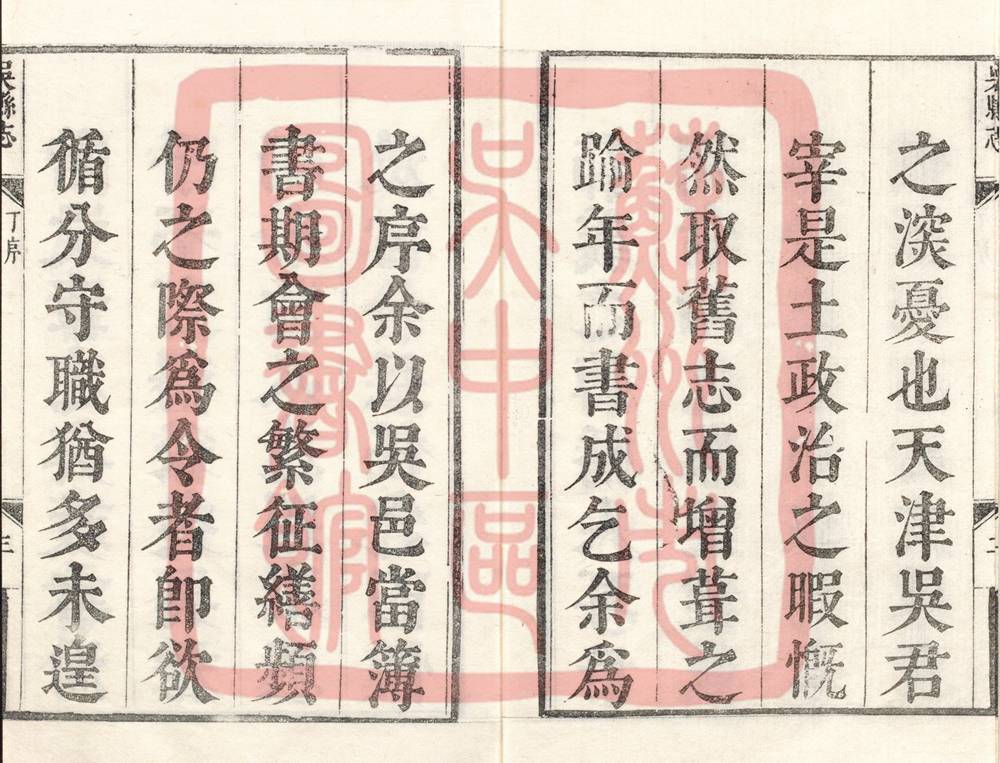 吳縣志
二
之深憂也天津吳君
宰是土政治之暇慨
然取舊志而增葺之
踰年而書成乞余爲
之序余以吳邑當簿
書期會之繁征繕頻
仍之際爲令者卽欲
循分守職猶多未遑
吳縣志
丁序
三
蘇州市
吳中區
圖書館